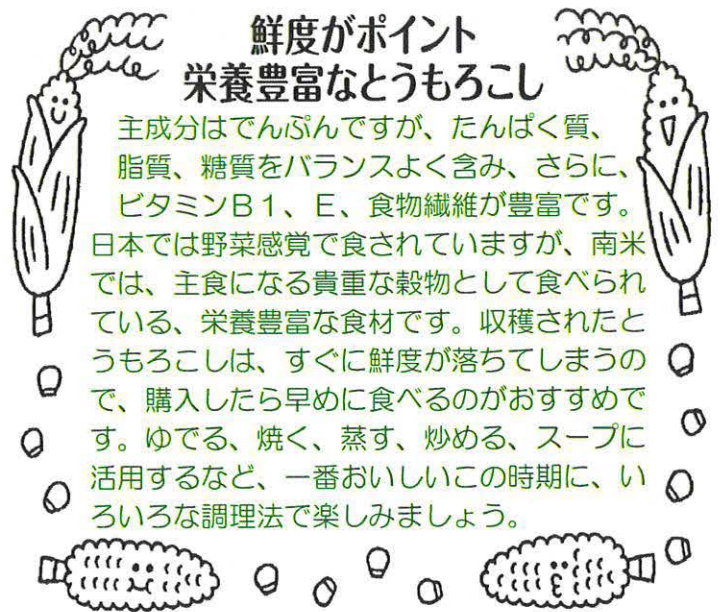 鮮度がポイント
栄養豊富なとうもろこし
主成分はでんぷんですが、たんぱく質、
脂質、糖質をバランスよく含み、さらに、
ビタミンB1、E、食物繊維が豊富です。
日本では野菜感覚で食されていますが、南米
では、主食になる貴重な穀物として食べられ
ている、栄養豊富な食材です。収穫されたと
うもろこしは、すぐに鮮度が落ちてしまうの
で、購入したら早めに食べるのがおすすめで
す。ゆでる、焼く、蒸す、炒める、スープに
活用するなど、一番おいしいこの時期に、い
ろいろな調理法で楽しみましょう。